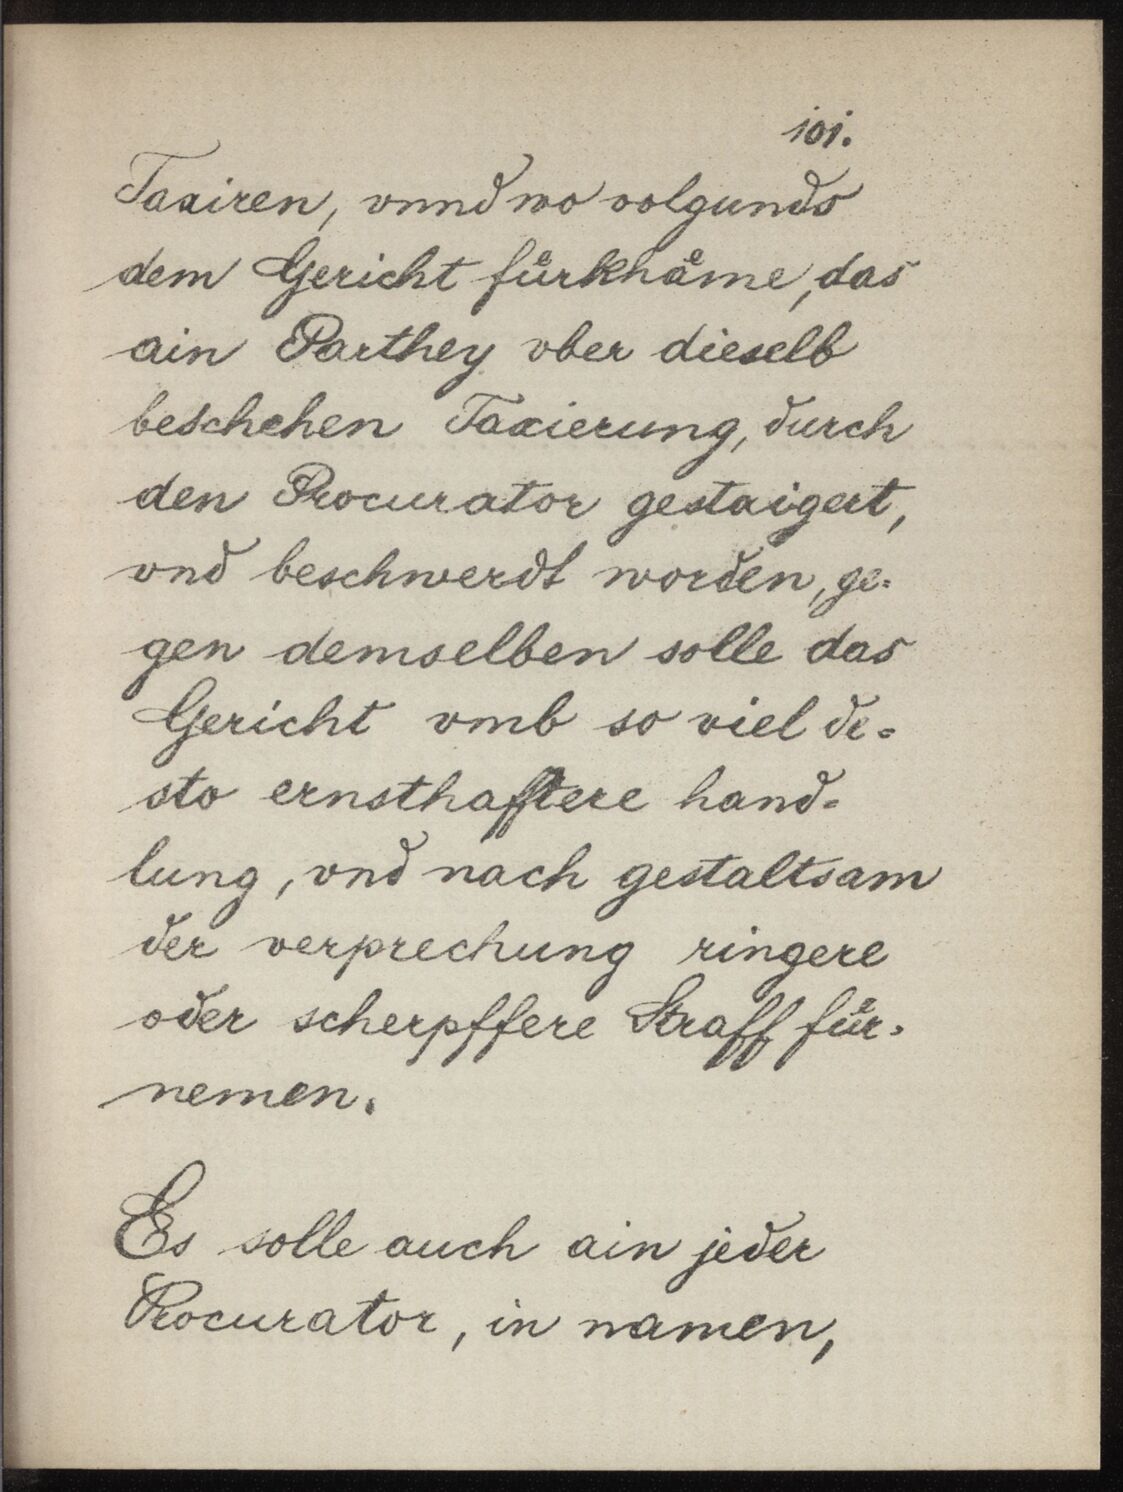 101.
Taxiren, vnnd wo volgunds
dem Gericht fürkhäme, das
ain Parthey vber dieselb
beschehen Taxierung, durch
den Procurator gestaigert,
vnd beschwerdt worden, ge-
gen demselben solle das
Gericht vmb so viel de-
sto ernsthafftere hand-
lung, vnd nach gestaltsam
der verprechung ringere
oder scherpffere Straff für-
nemen.
Es solle auch ain jeder
Procurator, in namen,